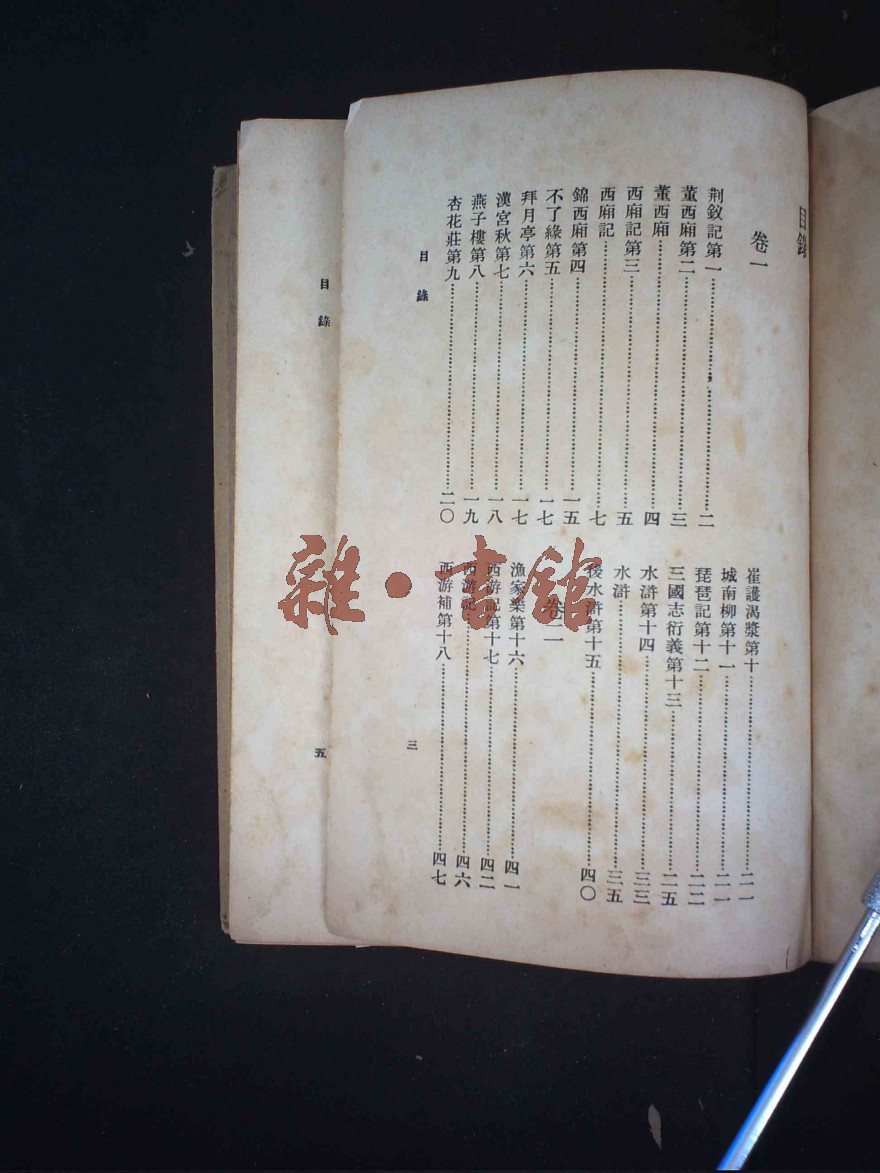 目錄
卷一
荆釵記第一……二
董西廂第二……三
董西廂……四
西廂記第三……五
西廂記……七
錦西廂第四……一五
不了緣第五……一七
拜月亭第六……一七
漢宮秋第七……一八
燕子樓第八……一九
杏花莊第九……二〇
崔護渴漿第十……二一
城南柳第十一……二一
琵琶記第十二……二二
三國志衍義第十三……二五
水滸第十四……三三
水滸……三五
後水滸第十五……四〇
卷二
漁家樂第十六……四一
西游記第十七……四二
西游記……四六
西游補第十八……四七
目錄
三
目錄
五
雜·書館